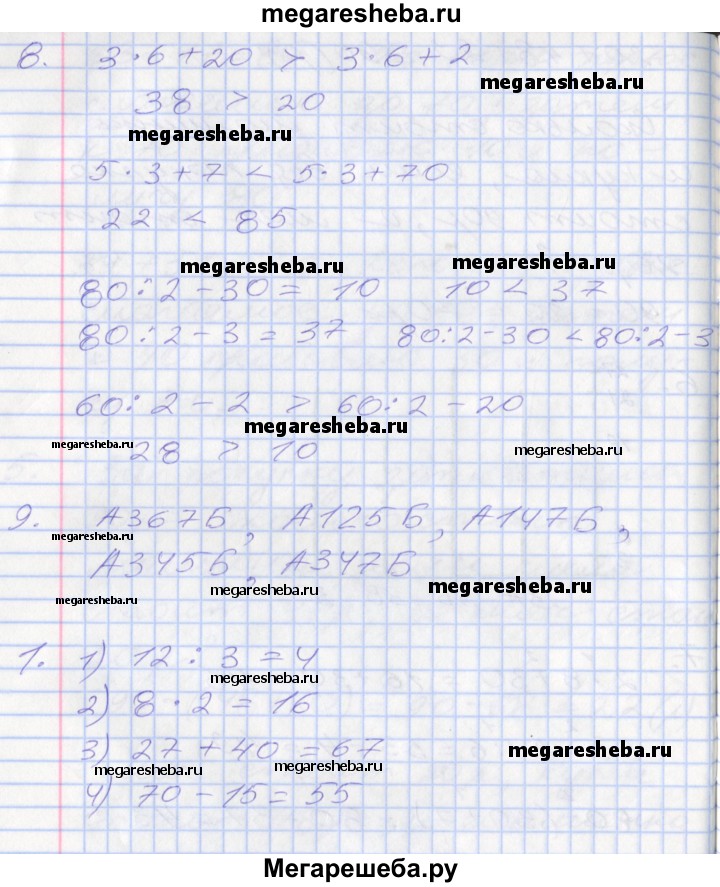 megaresheba.ru
8. 3·6+20 > 3·6+2
megaresheba.ru
38 > 20
megaresheba.ru
5·3+7 < 5·3+70
22 < 85
megaresheba.ru megaresheba.ru
80:2-30 = 10 10 < 37
80:2-3 = 37 80:2-30 < 80:2-3
60:2-2 > 60:2-20
megaresheba.ru
megaresheba.ru 28 > 10 megaresheba.ru
9. А367Б, А125Б, А147Б,
megaresheba.ru
А345Б, А347Б
megaresheba.ru megaresheba.ru
megaresheba.ru
1. 1) 12 : 3 = 4
megaresheba.ru
2) 8 · 2 = 16
3) 27 + 40 = 67 megaresheba.ru
megaresheba.ru megaresheba.ru
4) 70 - 15 = 55
Мегарешеба.ру